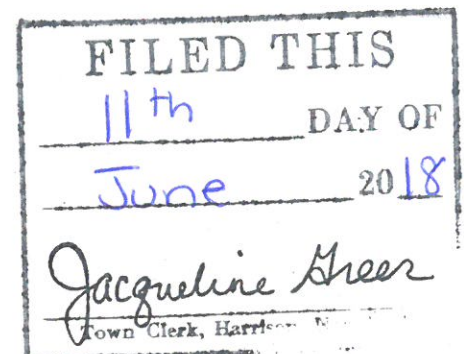 FILED THIS
11th DAY OF
June 2018
Jacqueline Greer
Town Clerk, Harrison